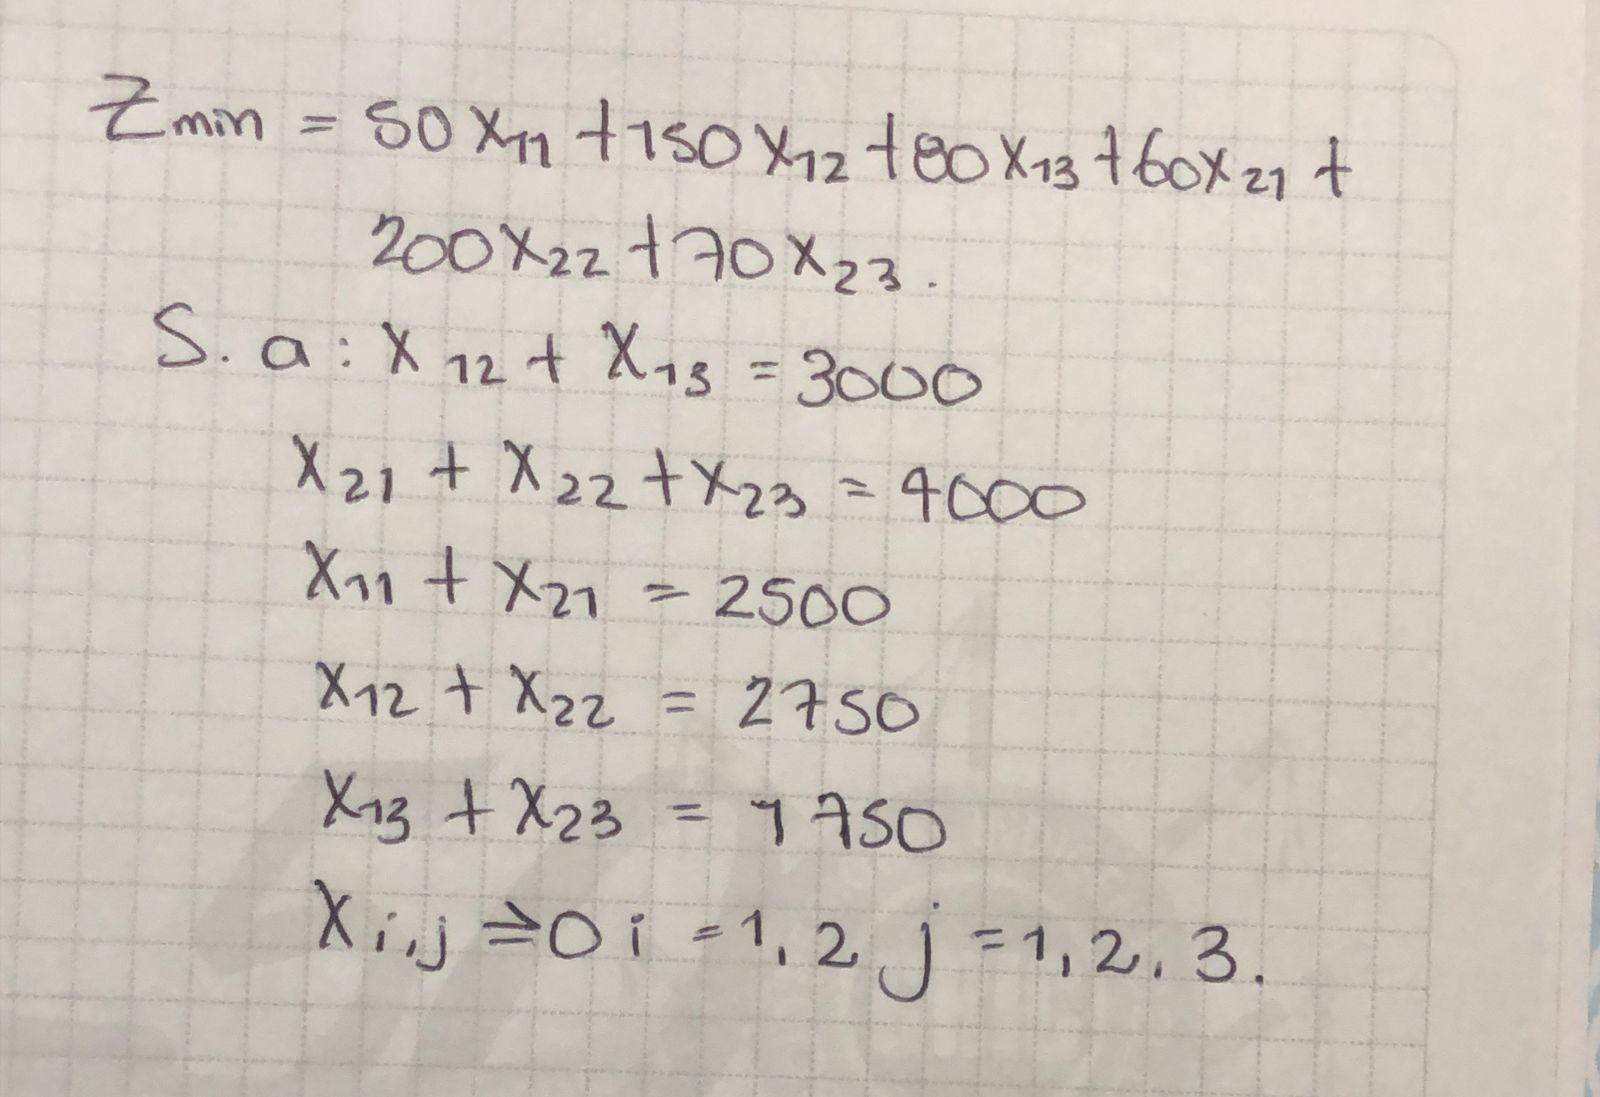 Zmin = 50x11 + 150x12 + 80x13 + 60x21 +
200x22 + 70x23.
S. a: x12 + x13 = 3000
x21 + x22 + x23 = 4000
x11 + x21 = 2500
x12 + x22 = 2750
x13 + x23 = 1750
xi,j ⩾ 0 i = 1, 2 j = 1, 2, 3.